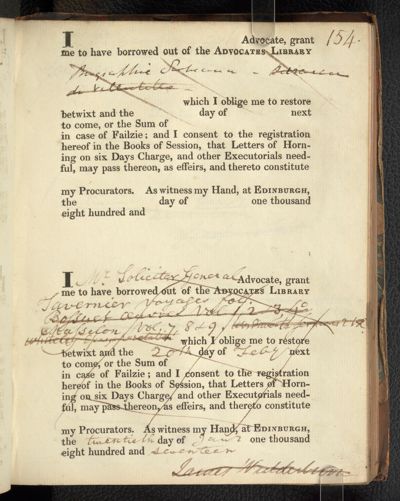 154.
I Advocate, grant
me to have borrowed out of the ADVOCATES LIBRARY
which I oblige me to restore
betwixt and the day of next
to come, or the Sum of
in case of Failzie; and I consent to the registration
hereof in the Books of Session, that Letters of Horn-
ing on six Days Charge, and other Executorials need-
ful, may pass thereon, as effeirs, and thereto constitute
my Procurators. As witness my Hand, at EDINBURGH,
the day of one thousand
eight hundred and
I Mr. Solicitor General Advocate, grant
me to have borrowed out of the ADVOCATES LIBRARY
Tavernier Voyages
Bossuet Vol 1, 2, 3, 4
Massilon, Vol. 7 8 & 9,
which I oblige me to restore
betwixt and the 20th day of Feby next
to come, or the Sum of
in case of Failzie; and I consent to the registration
hereof in the Books of Session, that Letters of Horn-
ing on six Days Charge, and other Executorials need-
ful, may pass thereon, as effeirs, and thereto constitute
my Procurators. As witness my Hand, at EDINBURGH,
the twentieth day of Jany one thousand
eight hundred and seventeen
James